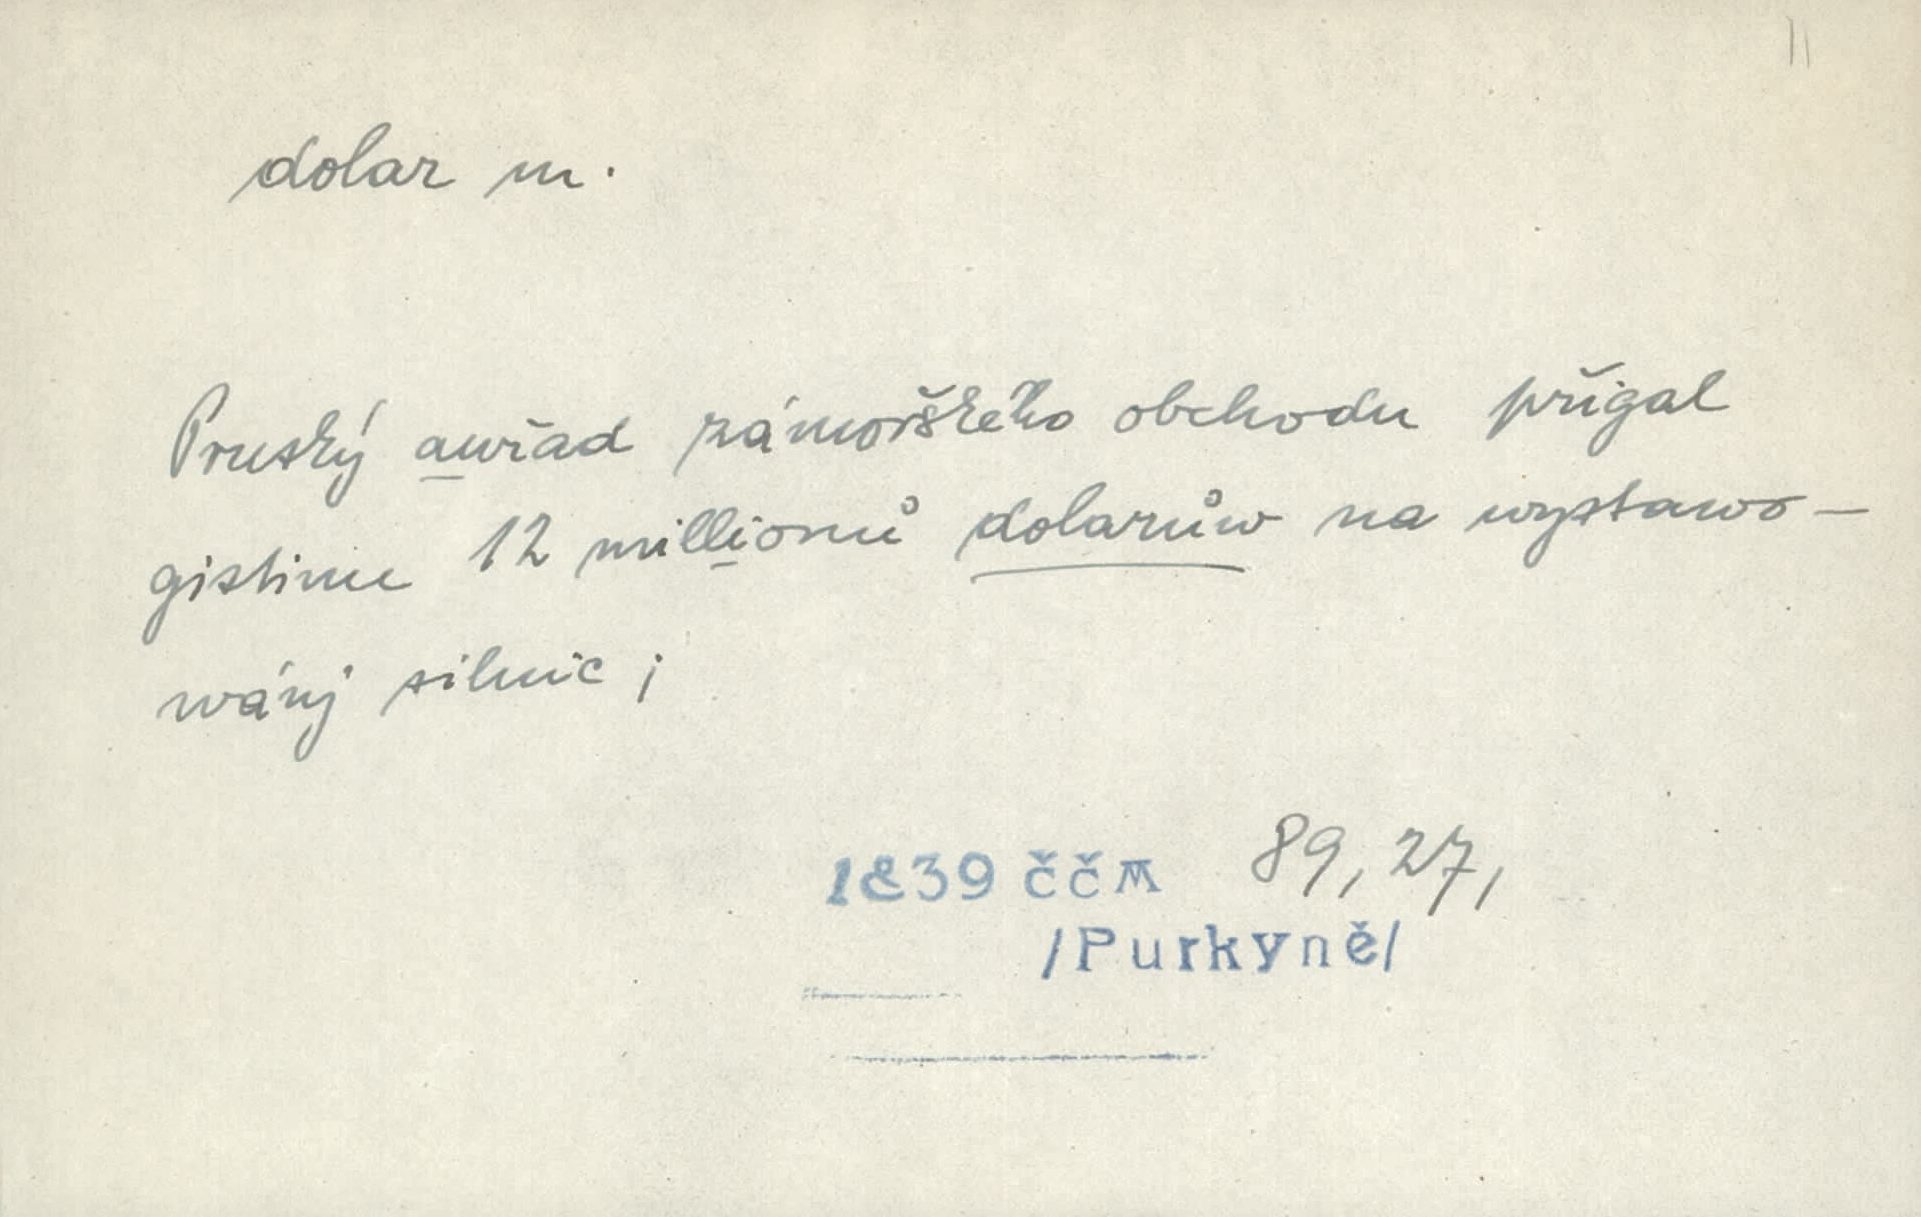 dolar m.
Pruský auřad zámořského obchodu přigal
gistinu 12 millionů dolarůw na wystawo-
wánj silnic;
1839 ČČM 89, 27,
/Purkyně/